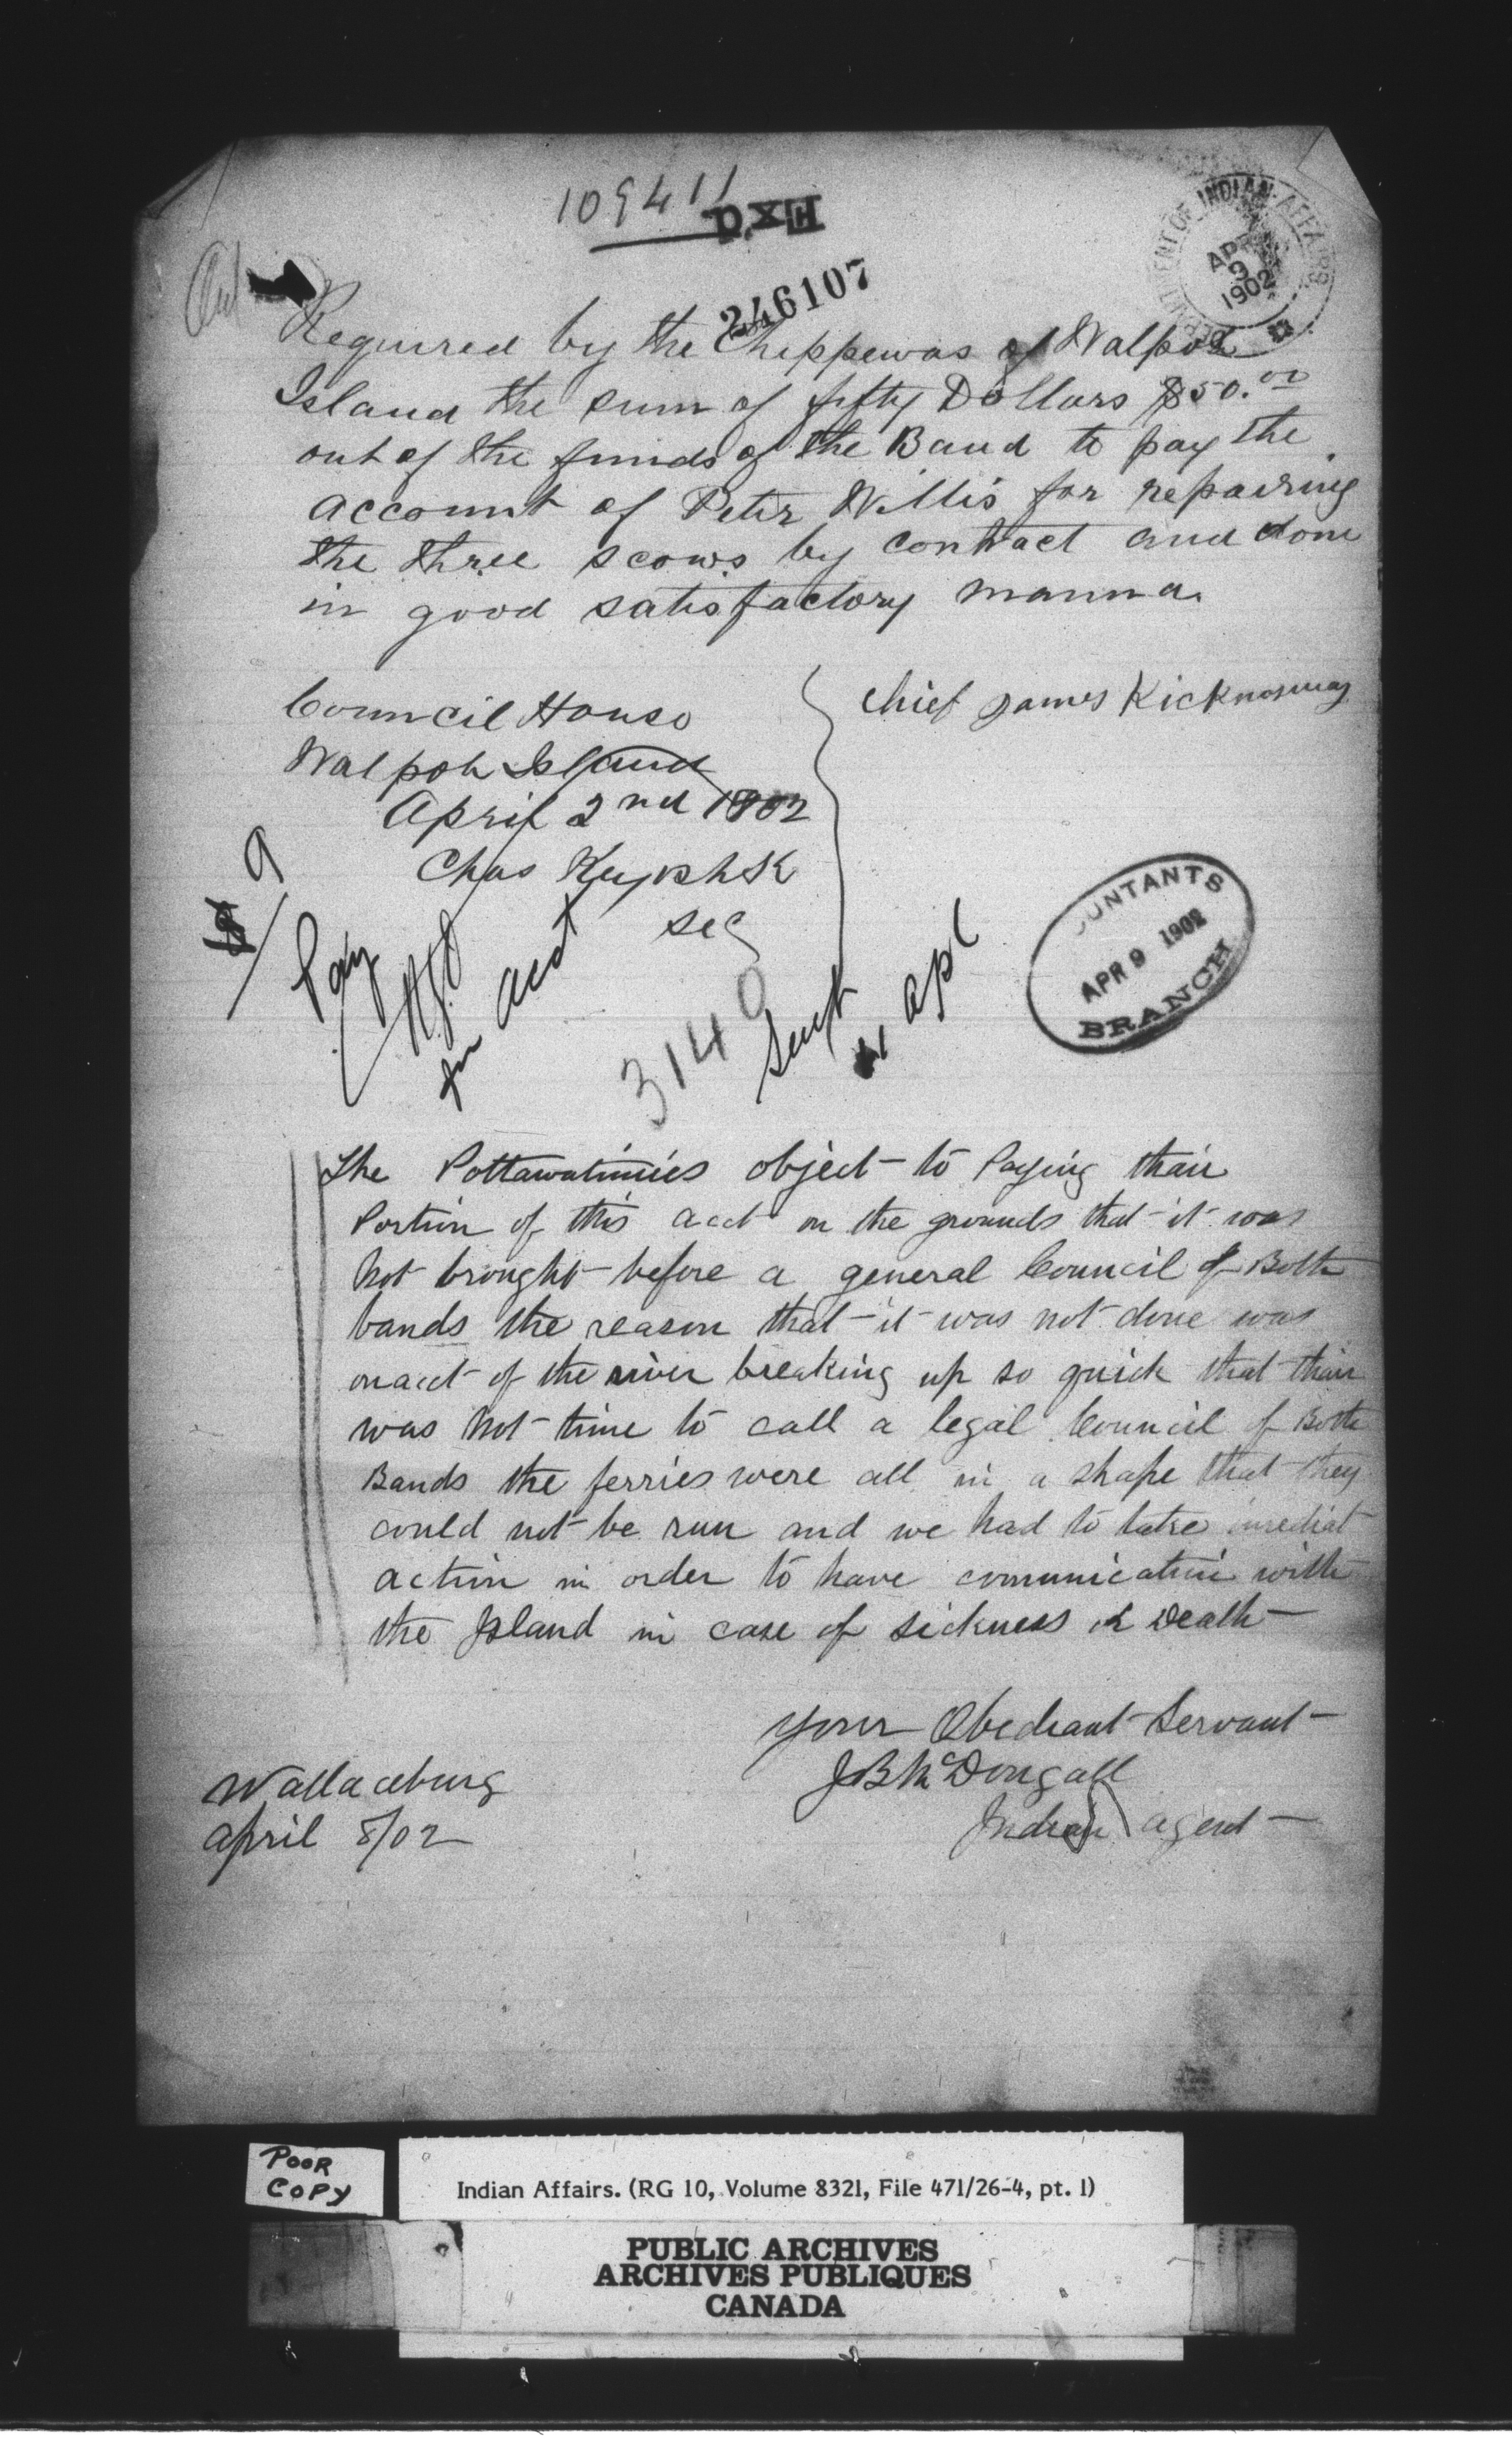 109411
HxD
246107
DEPARTMENT OF INDIAN AFFAIRS
APR
9
1902
Required by the Chippewas of Walpole
Island the sum of fifty Dollars $50.00
out of the funds of the Band to pay the
account of Peter Willis for repairing
the three scows by contract and done
in good satisfactory manner
Council House
Walpole Island
April 2nd 1902
Chas
Sec
Chief James Kicknosway
Pay
acct
3140
apl
COUNTANTS
APR 9 1902
BRANCH
The Pottawatimies object to Paying thair
Portion of this acct on the grounds that it was
Not brought before a general Council of Both
bands the reason that it was not done was
on acct of the river breaking up so quick that thair
was Not time to call a legal Council of Both
Bands the ferries were all in a shape that they
could not be run and we had to take imediat
action in order to have comunication with
the Island in case of sickness or Death
Your Obediant Servant
J B McDougall
Indian agent
Wallaceburg
April 8/02
POOR
COPY
Indian Affairs. (RG 10, Volume 8321, File 471/26-4, pt. 1)
PUBLIC ARCHIVES
ARCHIVES PUBLIQUES
CANADA